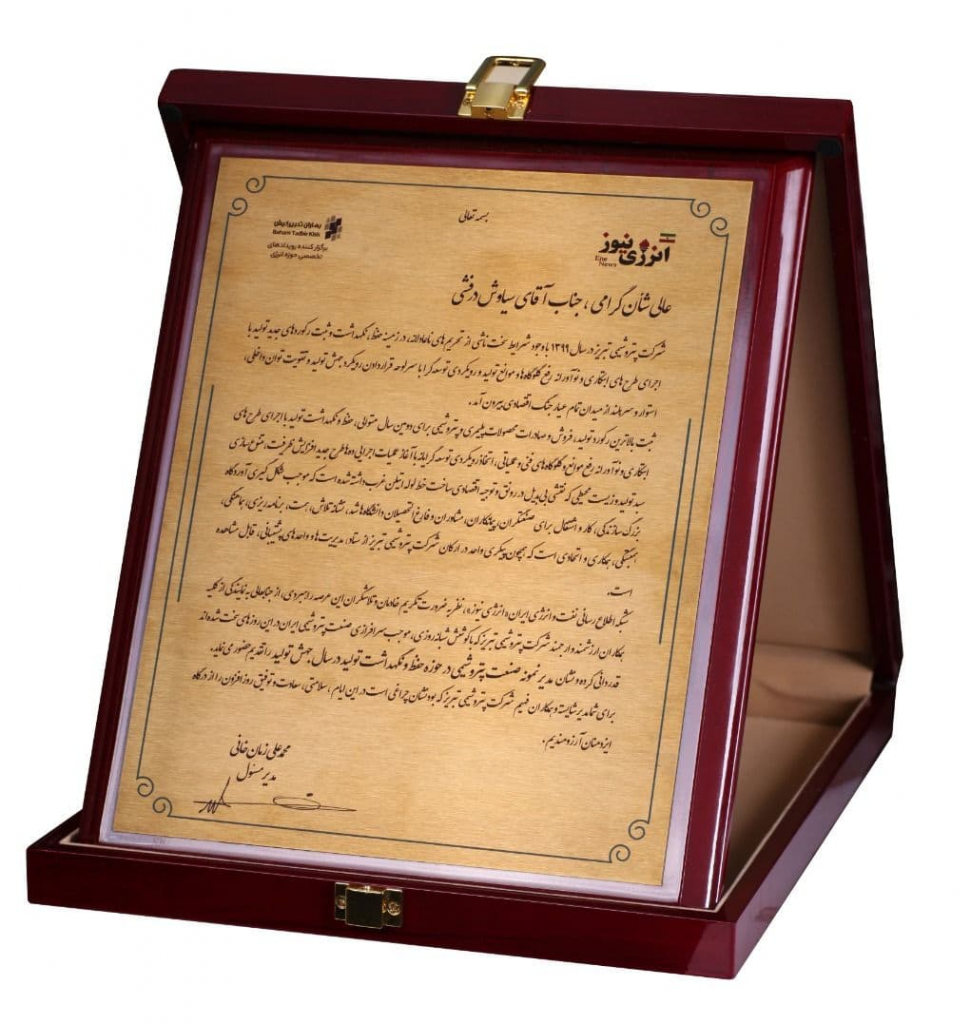 بسمه تعالی
انرژی نیوز
Ene News
بهاران تدبیر کیش
Baharan Tadbir Kish
برگزار کننده رویدادهای
تخصصی حوزه انرژی
عالی شأن گرامی ، جناب آقای سیاوش درفشی
شرکت پتروشیمی تبریز در سال ۱۳۹۹ با وجود شرایط سخت ناشی از تحریم های ناعادلانه، در زمینه حفظ، نگهداشت و ثبت رکوردهای جدید تولید با
اجرای طرح های ابتکاری و نوآورانه رفع گلوگاه‌ها و موانع تولید و رویکردی توسعه گرا با سرلوحه قرار دادن رویکرد جهش تولید و تقویت توان داخلی،
استوار و سربلند از میدان تمام عیار جنگ اقتصادی بیرون آمد.
ثبت بالاترین رکورد تولید، فروش و صادرات محصولات پلیمری و پتروشیمی برای دومین سال متوالی، حفظ و نگهداشت تولید با اجرای طرح های
ابتکاری و نوآورانه رفع موانع و گلوگاه‌های فنی و عملیاتی، اتخاذ رویکردی توسعه گرایانه با آغاز عملیات اجرایی ده‌ها طرح جدید افزایش ظرفیت، متنوع سازی
سبد تولید و زیست محیطی که نقشی بی بدیل در رونق و توجیه اقتصادی ساخت خط لوله اتیلن غرب داشته شده است که موجب شکل گیری آوردگاه
بزرگ سازندگی، کار و اشتغال برای صنعتگران، پیمانکاران، مشاوران و فارغ التحصیلان دانشگاه‌ها شد، نشانه تلاش، همت، برنامه ریزی، هماهنگی،
همبستگی، همکاری و اتحادی است که همچون پیکری واحد در ارکان شرکت پتروشیمی تبریز از ستاد، مدیریت‌ها و واحدهای پشتیبانی، قابل مشاهده
است.
شبکه اطلاع رسانی نفت و انرژی ایران «انرژی نیوز»، نظر به ضرورت تکریم خادمان و تلاشگران این عرصه راهبردی، از جنابعالی به نمایندگی از کلیه
همکاران ارزشمند و ارجمند شرکت پتروشیمی تبریز که با کوشش شبانه روزی، موجب سرافرازی صنعت پتروشیمی ایران در این روزهای سخت شده‌اند
قدردانی کرده و نشان مدیر نمونه صنعت پتروشیمی در حوزه حفظ و نگهداشت تولید در سال جهش تولید را تقدیم حضور می نماید.
برای شما مدیر شایسته و همکاران فهیم شرکت پتروشیمی تبریز که بودنشان چراغی است در این ایام، سلامتی، سعادت و توفیق روز افزون را از درگاه
ایزد منان آرزومندیم.
محمد علی زمان خانی
مدیر مسئول